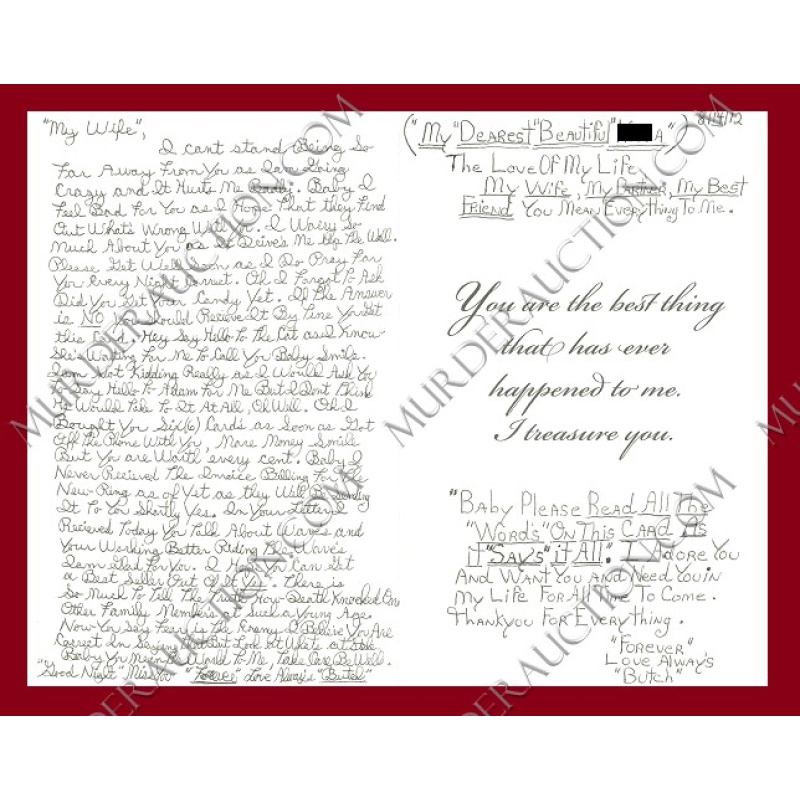 "My Wife",
I cant stand Being So
Far Away From You as I am Going
Crazy and It Hurts Me Badly. Baby I
Feel Bad For You as I Hope That they Find
Out What's Wrong With You. I Worry So
Much About You as It Drive's Me Up The Wall.
Please Get Well Soon as I Do Pray For
You Every Night Correct. Oh I Forgot To Ask
Did You Get Your Candy Yet. If The Answer
is NO You Should Recieve It By Time You Get
this Card. Hey Say Hello To The Cat as I Know
She's Waiting For Me To Call You Baby Smile.
I am Not Kidding Really as I Would Ask You
To Say Hello To Adam For Me But I Dont Think
He Would Take To It At All, Oh Well. Oh I
Bought You Six(6) Card's as Soon as I Got
Off The Phone With You, More Money Smile
But You are Worth every cent. Baby I
Never Recieved The Invoice Billing For The
New Ring as of Yet as they Will Be Sending
It To You Shortly Yes. In Your Letter I
Recieved Today You Talk About Wave's and
Your Working Better Riding The Wave's
I am Glad For You. I Hope You Can Get
a Best Seller Out Of It Yes. There is
So Much To Tell The Truth How Death Knocked On
Other Family Members at Such a Young Age.
Now You Say Fear is The Enemy I Believe You Are
Correct In Saying That But Look At What's at Stake
Baby You Mean The World To Me, Take Care Be Well.
"Good Night" "Forever" Love Always "Butch"
("My "Dearest "Beautiful" a") 8/14/12
The Love Of My Life,
My Wife, My Partner, My Best
Friend You Mean Everything To Me.
You are the best thing
that has ever
happened to me.
I treasure you.
"Baby Please Read All The
"Words" On This Card As
it "Says" it All". I Adore You
And Want You And Need You in
My Life For All Time To Come.
Thankyou For Everything.
"Forever"
Love Alway's
"Butch"
MURDERAUCTION.COM